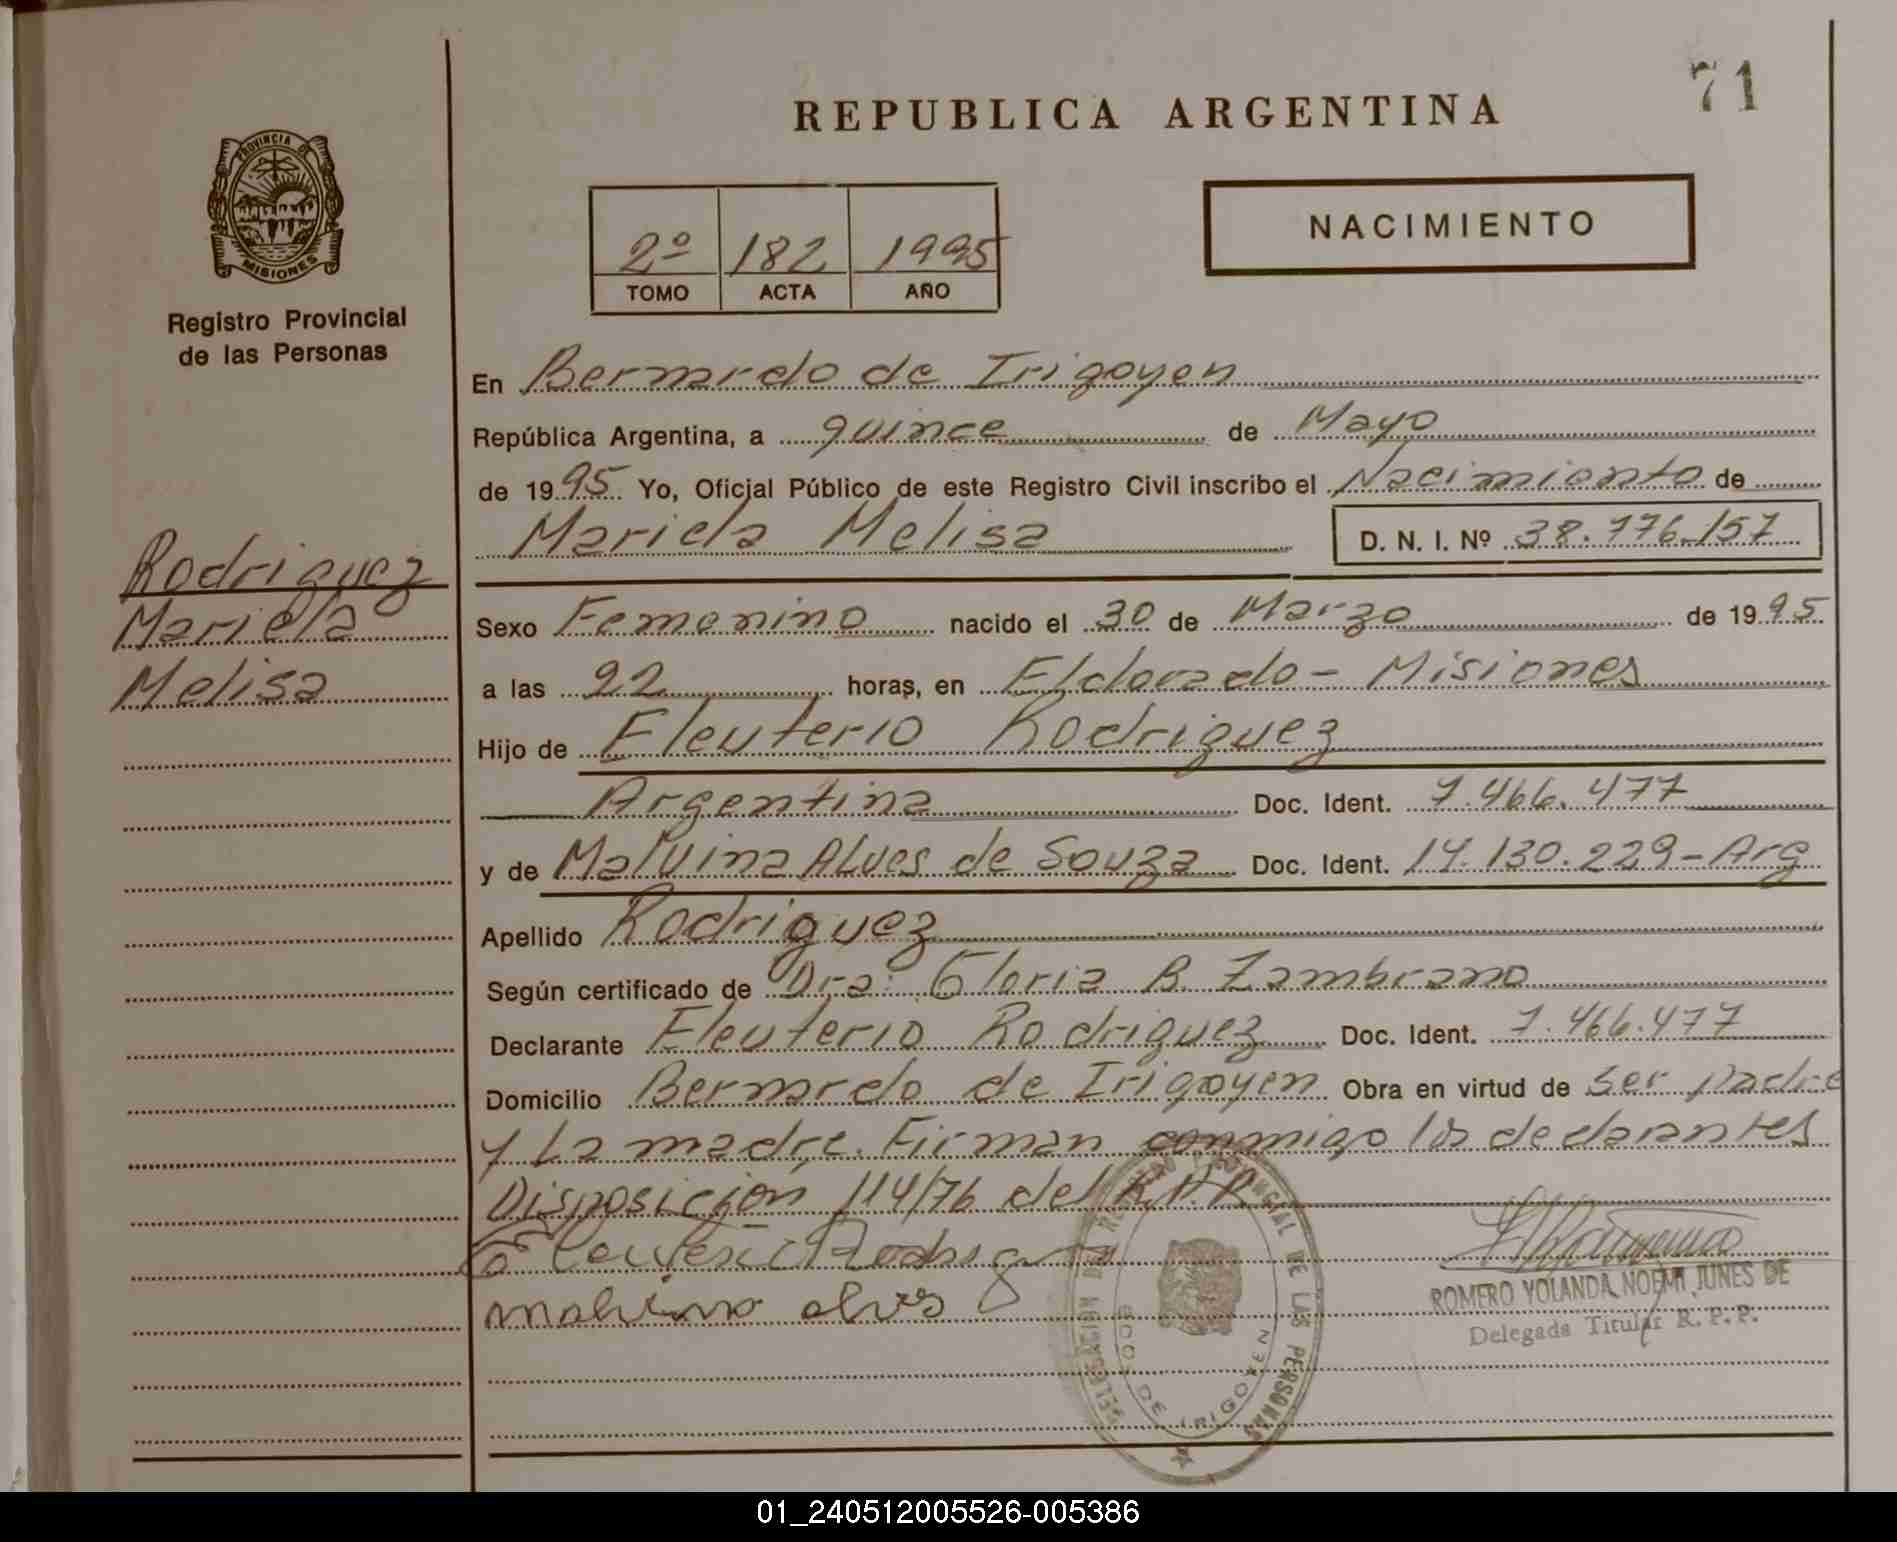 71
REPUBLICA ARGENTINA
PROVINCIA DE
MISIONES
Registro Provincial
de las Personas
2º 182 1995
TOMO ACTA AÑO
NACIMIENTO
En Bernardo de Irigoyen
República Argentina, a quince de Mayo
de 1995 Yo, Oficial Público de este Registro Civil inscribo el Nacimiento de
Mariela Melisa D. N. I. Nº 38.776.157
Rodriguez
Mariela
Melisa
Sexo Femenino nacido el 30 de Marzo de 1995
a las 22 horas, en Eldorado - Misiones
Hijo de Eleuterio Rodriguez
Argentina Doc. Ident. 7.466.477
y de Malvina Alves de Souza Doc. Ident. 14.130.229 - Arg
Apellido Rodriguez
Según certificado de Dra: Gloria B. Zambrano
Declarante Eleuterio Rodriguez Doc. Ident. 7.466.477
Domicilio Bernardo de Irigoyen Obra en virtud de ser padre
y La madre. Firman conmigo los declarantes
Disposición 114/76 del R.P.P.
Eleuterio Rodriguez
malvina alves
DELEGACION DEL REGISTRO PROVINCIAL DE LAS PERSONAS
DE IRIGOYEN
ROMERO YOLANDA NOEMI JUNES DE
Delegada Titular R. P. P.
01_240512005526-005386